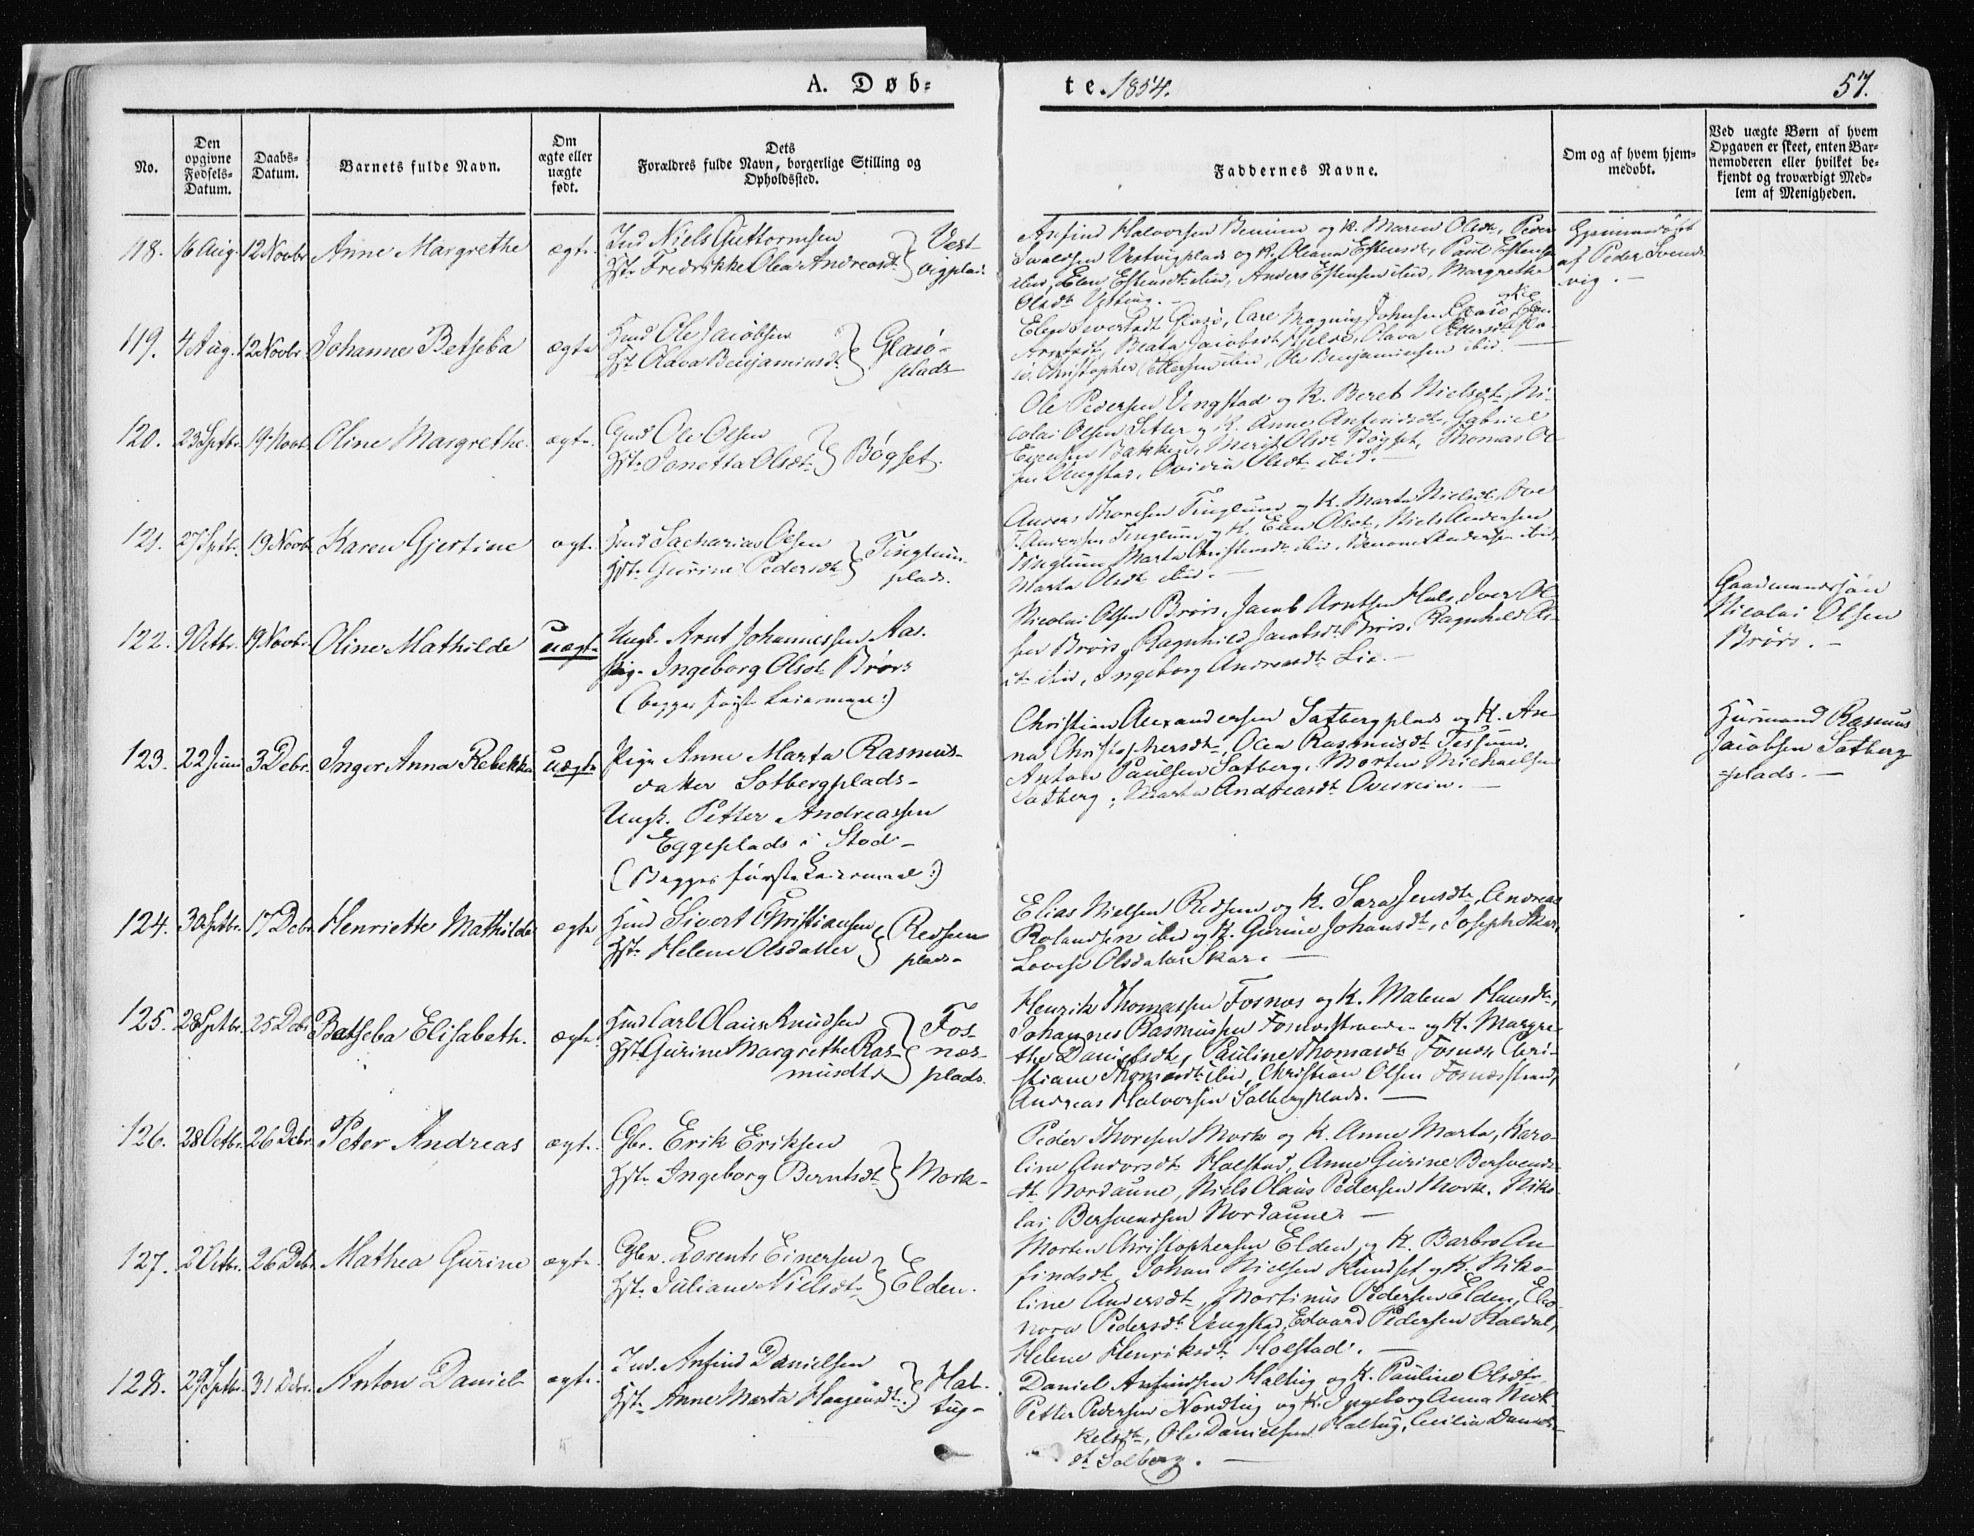 A. Døb=
te. 1854.
57.
No.
Den
opgivne
Fødsels-
Datum.
Daabs-
Datum.
Barnets fulde Navn.
Om
ægte eller
uægte
født.
Dets
Forældres fulde Navn, borgerlige Stilling og
Opholdssted.
Faddernes Navne.
Om og af hvem hjem-
medøbt.
Ved uægte Børn af hvem
Opgaven er skeet, enten Bar-
nemoderen eller hvilket be-
kjendt og troværdigt Med-
lem af Menigheden.
118. 16 Aug. 12 Novbr. Anne Margrethe ægte
Ind. Niels Guttormsen
Hst. Fredrikke Olea Andreasdt.
Vest
vigplads
Arfind Halvorsen Benum og K. Maren Olsdt., Peder
Svendsen Vestvigplads og K. Oleana Estensdt., Paul Estensen
ibid, Elen Estensdt. ibid, Anders Estensen ibid, Margrethe
Olsdt.
Hjemmedøbt
af Peder Svends
vig. -
119. 4 Aug. 12 Novbr. Johanne Betseba ægte
Hmd Ole Jacobsen
Hst. Olava Benjaminsdt.
Glasø-
plads
Elen Sivertsdt. Glasø, Carl Magnus Johnsen
Arntsdt., Beata Jacobsdt. Hjelde, Olava Pettersdt.
Christopher Pettersen ibid, Ole Benjaminsen ibid. -
120. 23 Septbr. 19 Novb. Oline Margrethe. ægte.
Gmd Ole Olsen
Hst. Jonetta Olsdt.
Bøgset.
Ole Pedersen Vengstad og K. Beret Nielsdt., Ni-
colai Olsen Setter og K. Anne Anfindsdt., Gabriel
Evensen Bakken, Merit Olsdt. Bøgset, Thomas Ol
sen Vengstad, Ovidia Olsdt. ibid. -
121. 27 Septb. 19 Novb. Karen Gjertine ægt.
Hmd Sacharias Olsen
Hst. Gurine Pedersdt.
Tinglum
plads.
Anders Thoresen Tinglum og K. Marta Nielsdt., Ove
Andersen Tinglum og K. Elen Olsdt., Niels Andersen
Tinglum, Marta Christensdt. ibid, Benone Andersen ibid
Marta Olsdt. ibid. -
122. 9 Octbr. 19 Novbr. Oline Mathilde uægte
Ungk. Arnt Johannessen Aas.
Pig. Ingeborg Olsdt. Brørs
(begges første Leiermaal:)
Nicolai Olsen Brørs, Jacob Arntsen Hals, Iver Ol
sen Brørs, Ragnhild Jacobsdt. Brørs, Ragnhild Ols
dt. ibid, Ingeborg Andreasdt. Lie. -
Gaardmandssøn
Nicolai Olsen
Brørs. -
123. 22 Juni 3 Debr. Inger Anna Rebekka uægte
Pige Anne Marta Rasmus-
datter Solbergplads -
Ungk. Petter Andreassen
Eggeplads i Stod -
(Begges første Leiermaal:)
Christian Alexandersen Solbergplads og K. An-
na Christophersdt., Olea Rasmusdt. Tessum.
Anton Paulsen Solberg, Morten Michaelsen
Solberg, Marta Andreasdt. Overrein. -
Huusmand Rasmus
Jacobsen Solberg
=plads. -
124. 30 Septbr. 17 Debr. Henriette Mathilde ægte
Hmd Sivert Christiansen
Hst. Helene Olsdatter
Redsem
plads -
Elias Nielsen Redsem og K. Sara Jensdt., Andreas
Rolandsen ibid og K. Gurine Johansdt., Joseph Skar,
Lovise Olsdatter Skar. -
125. 28 Septbr. 25 Debr. Batseba Elisabeth. ægte.
Hmd Carl Olaus Knudsen
Hst. Gurine Margrethe Ras-
musdt.
Fos-
næs-
plads.
Henrik Thomassen Fosnæs og K. Malena Hansdt.,
Johannes Rasmussen Fosnæsstranden og K. Margre
the Danielsdt., Pauline Thomasdt. Fosnæs, Chri-
stiane Thomasdt. ibid, Christian Olsen Fosnæsstrand,
Andreas Halvorsen Solbergplads. -
126. 28 Octbr. 26 Debr. Peter Andreas ægt.
Gbr. Erik Eriksen
Hst. Ingeborg Berntsdt.
Mork -
Peder Thoresen Mork og K. Anne Marta, Karo-
line Andorsdt. Holstad, Anne Gurine Bersvends-
dt. Nordaune, Niels Olaus Pedersen Mork, Niko-
lai Bersvendsen Nordaune. -
127. 2 Octbr. 26 Debr. Mathea Gurine ægte.
Gbr. Lorents Einersen
Hst. Juliane Nielsdt.
Elden.
Morten Christophersen Elden og K. Barbro An
findsdt., Johan Nielsen Kundset og K. Niko-
line Andersdt., Mortinus Pedersen Elden, Ele-
nora Pedersdt. Vengstad, Edvard Pedersen Kaldal,
Helene Henriksdt. Holstad. -
128. 29 Septbr. 31 Debr. Anton Daniel ægte.
Ind. Anfind Danielsen
Hst. Anne Marta Haagensdt.
Hal-
tug -
Daniel Anfindsen Haltug og K. Pauline Olsdt.,
Petter Pedersen Nordtug og K. Ingeborg Anna Mik
kelsdt., Ole Danielsen Haltug, Cecilia Daniels-
dt. Solberg. -